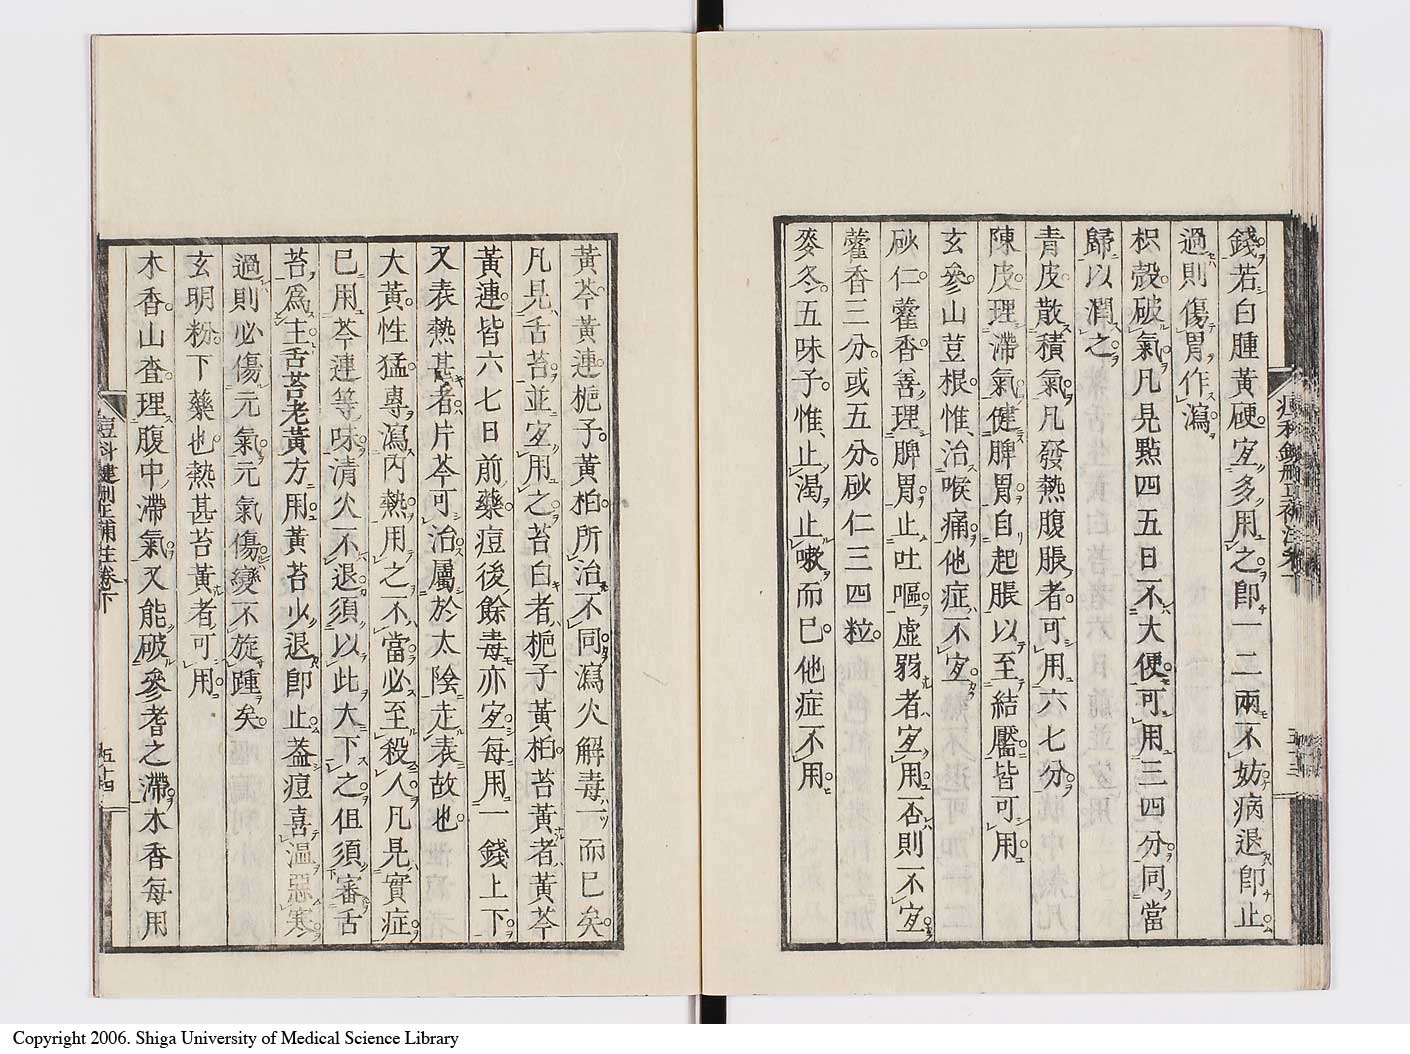 錢若白腫黃硬宜多用之即一二兩不妨病退即止
過則傷胃作瀉
枳殼破氣凡見點四五日不大便可用三四分同當
歸以潤之
青皮散積氣凡發熱腹脹者可用六七分
陳皮理滯氣健脾胃自起脹以至結靨皆可用
玄參山荳根惟治喉痛他症不宜
砂仁藿香善理脾胃止吐嘔虛弱者宜用否則不宜
藿香三分或五分砂仁三四粒
麥冬五味子惟止渴止嗽而已他症不用
黃芩黃連梔子黃柏所治不同瀉火解毒一而已矣
凡見舌苔並宜用之苔白者梔子黃柏苔黃者黃芩
黃連皆六七日前藥痘後餘毒亦宜每用一錢上下
又表熱甚者片芩可治屬於太陰走表故也
大黃性猛專瀉內熱用之不當必至殺人凡見實症
已用芩連等味清火不退須以此大下之但須審舌
苔爲主舌苔老黃方用黃苔少退即止葢痘喜溫惡寒
過則必傷元氣元氣傷變不旋踵矣
玄明粉下藥也熱甚苔黃者可用
木香山查理腹中滯氣又能破參耆之滯木香每用
痘科鍵刪正補註卷下
五十四